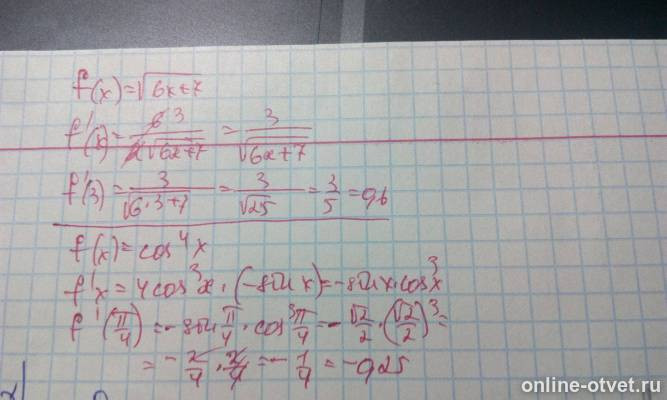 f(x)=√6x+7
f'(x)= 6 3 / 2√6x+7 = 3 / √6x+7
f'(3)= 3 / √6·3+7 = 3 / √25 = 3/5 = 0,6
f(x)=cos⁴x
f'x=4cos³x·(-sin x)=-sin x·cos³x
f'(π/4)=-sin π/4·cos³ π/4=-√2/2·(√2/2)³=
=-2/4·2/4=-1/4=-0,25
online-otvet.ru